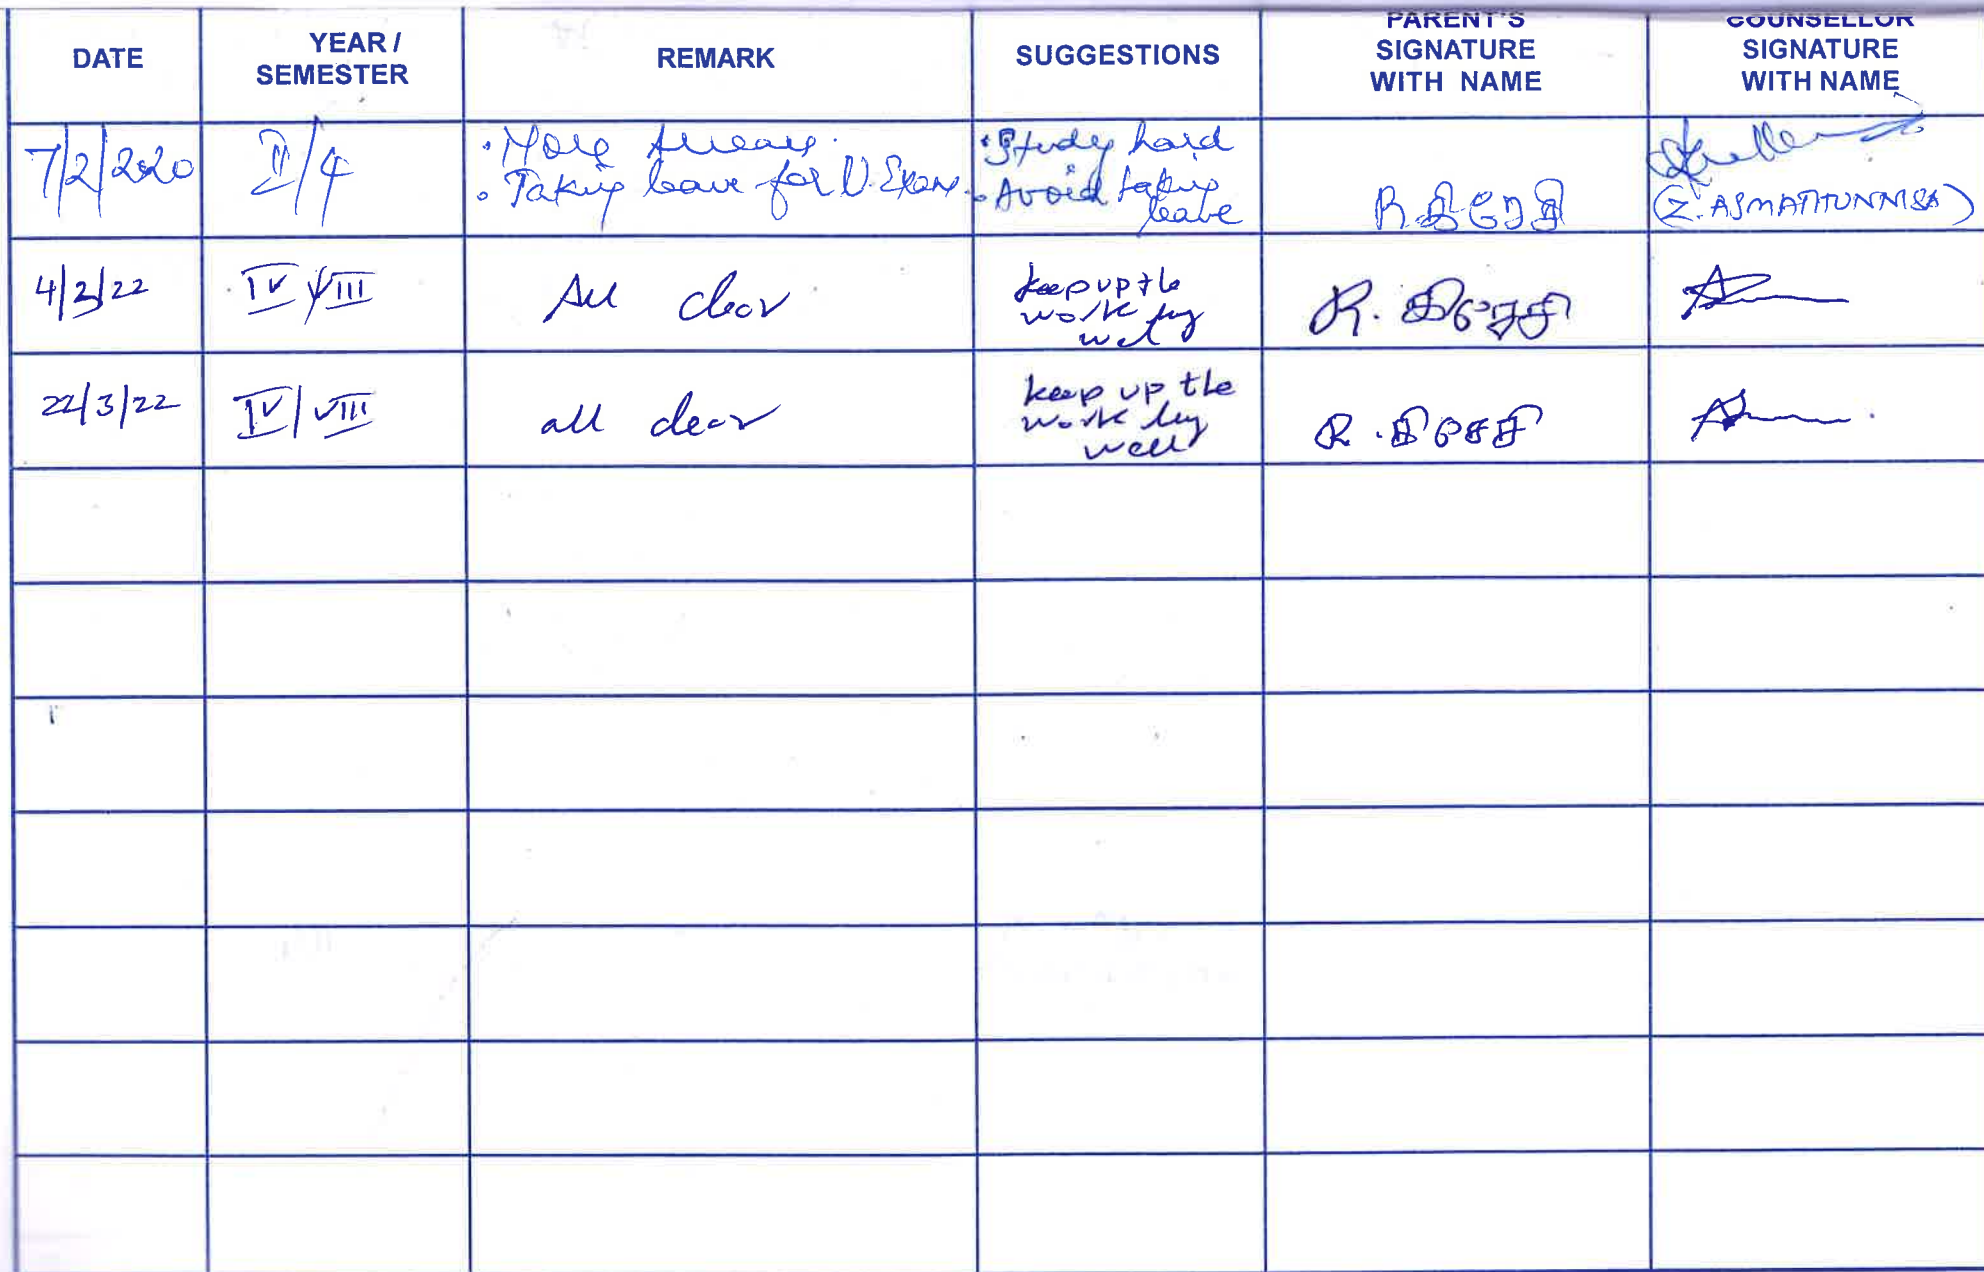 DATE
YEAR /
SEMESTER
REMARK
SUGGESTIONS
PARENT'S
SIGNATURE
WITH NAME
COUNSELLOR
SIGNATURE
WITH NAME
7/2/2020
II/4
• More Arrears.
• Taking leave for U. Exam.
• Study hard
• Avoid taking
leave
(Z. ASMATHUNNISA)
4/3/22
IV/VIII
All clear
keep up the
work
22/3/22
IV/VIII
all clear
keep up the
work
well